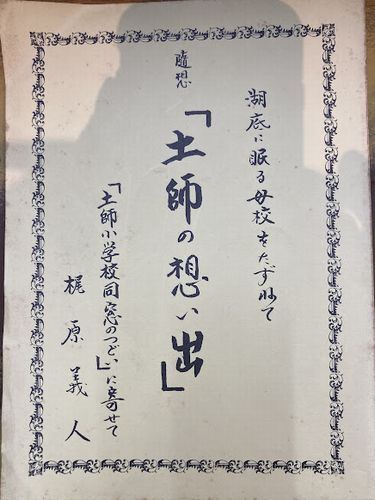 湖底に眠る母校をたずねて
随想
「土師の想い出」
「土師小学校同窓のつどい」に寄せて
梶原義人